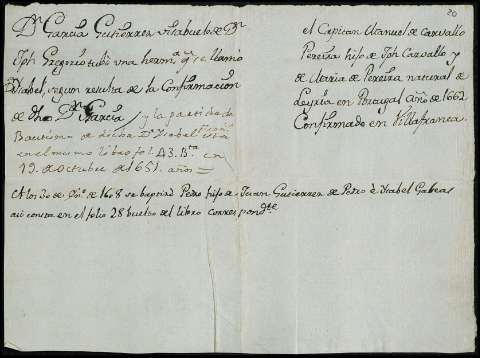 Dn. Garcia Gutierrez visabuelo de Dn.
Jph Gregorio tubo una herma. qe. se llamó
Ysabel, segun resulta de la Confirmacion
de dho Dn. Garcia, y la partida de
Bautismo de dicha Da. Ysabel está
en el mismo libro fol. 43. Bta. en
19. de octubre de 1651. años =
A los 30 de de 1608 se baptizó Pedro hijo de Juan Gutierrez de Pedro è Ysabel Gabeas
asi consta en el folio 28 buelto del libro correspondte.
20
el Capitan Manuel de Carvallo
Pereira hijo de Jph Carvallo y
de Maria de Pereira natural de
Leyria en Portugal año de 1662
Confirmado en Villafranca.